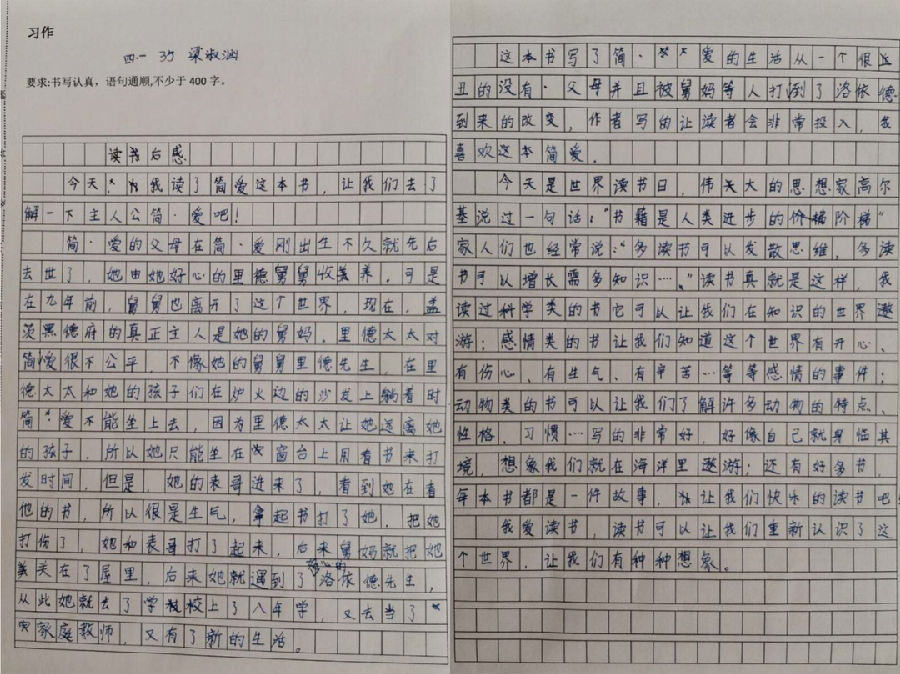 习作
四.一 35 梁淑涵
要求:书写认真，语句通顺,不少于400字。
读书后感
今天，我读了简爱这本书，让我们去了
解一下主人公简·爱吧！
简·爱的父母在简·爱刚出生不久就先后
去世了，她由她好心的里德舅舅收养，可是
在九年前，舅舅也离开了这个世界，现在，盖
茨黑德府的真正主人是她的舅妈，里德太太对
简爱很不公平，不像她的舅舅里德先生，在里
德太太和她的孩子们在炉火边的沙发上躺着时
简·爱不能坐上去，因为里德太太让她远离她
的孩子，所以她只能坐在窗台上用看书来打
发时间，但是，她的表哥进来了，看到她在看
他的书，所以很是生气，拿起书打了她，把她
打伤了，她和表哥打了起来，后来舅妈就把她
关在了屋里，后来她就遇到了好心的洛依德先生，
从此她就去了学校上了八年学，又去当了
家庭教师，又有了新的生活。
这本书写了简·爱的生活从一个很
丑的没有·父母并且被舅妈等人打倒了洛依德
到来的改变，作者写的让读者会非常投入，我
喜欢这本简爱。
今天是世界读书日，伟大的思想家高尔
基说过一句话：“书籍是人类进步的阶梯”
家人们也经常说：“多读书可以发散思维，多读
书可以增长需多知识……”读书真就是这样，我
读过科学类的书它可以让我们在知识的世界遨
游；感情类的书让我们知道这个世界有开心、
有伤心、有生气、有辛苦…等等感情的事件；
动物类的书可以让我们了解许多动物的特点、
性格、习惯…写的非常好，好像自己就身临其
境，想象我们就在海洋里遨游；还有好多书，
每本书都是一件故事，让我们快乐的读书吧
我爱读书，读书可以让我们重新认识了这
个世界，让我们有种种想象。